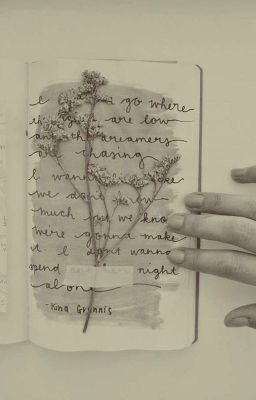 I go where
the are low
and the dreamers
are chasing
I wanna like
we don't know
much but we know
we're gonna make
it. I don't wanna
spend night
alone
- Kina Grannis